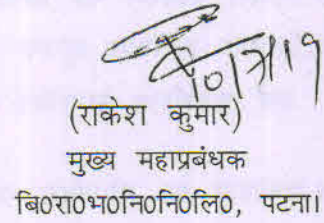 10/7/19
(राकेश कुमार)
मुख्य महाप्रबंधक
बि0रा0भ0नि0नि0लि0, पटना।